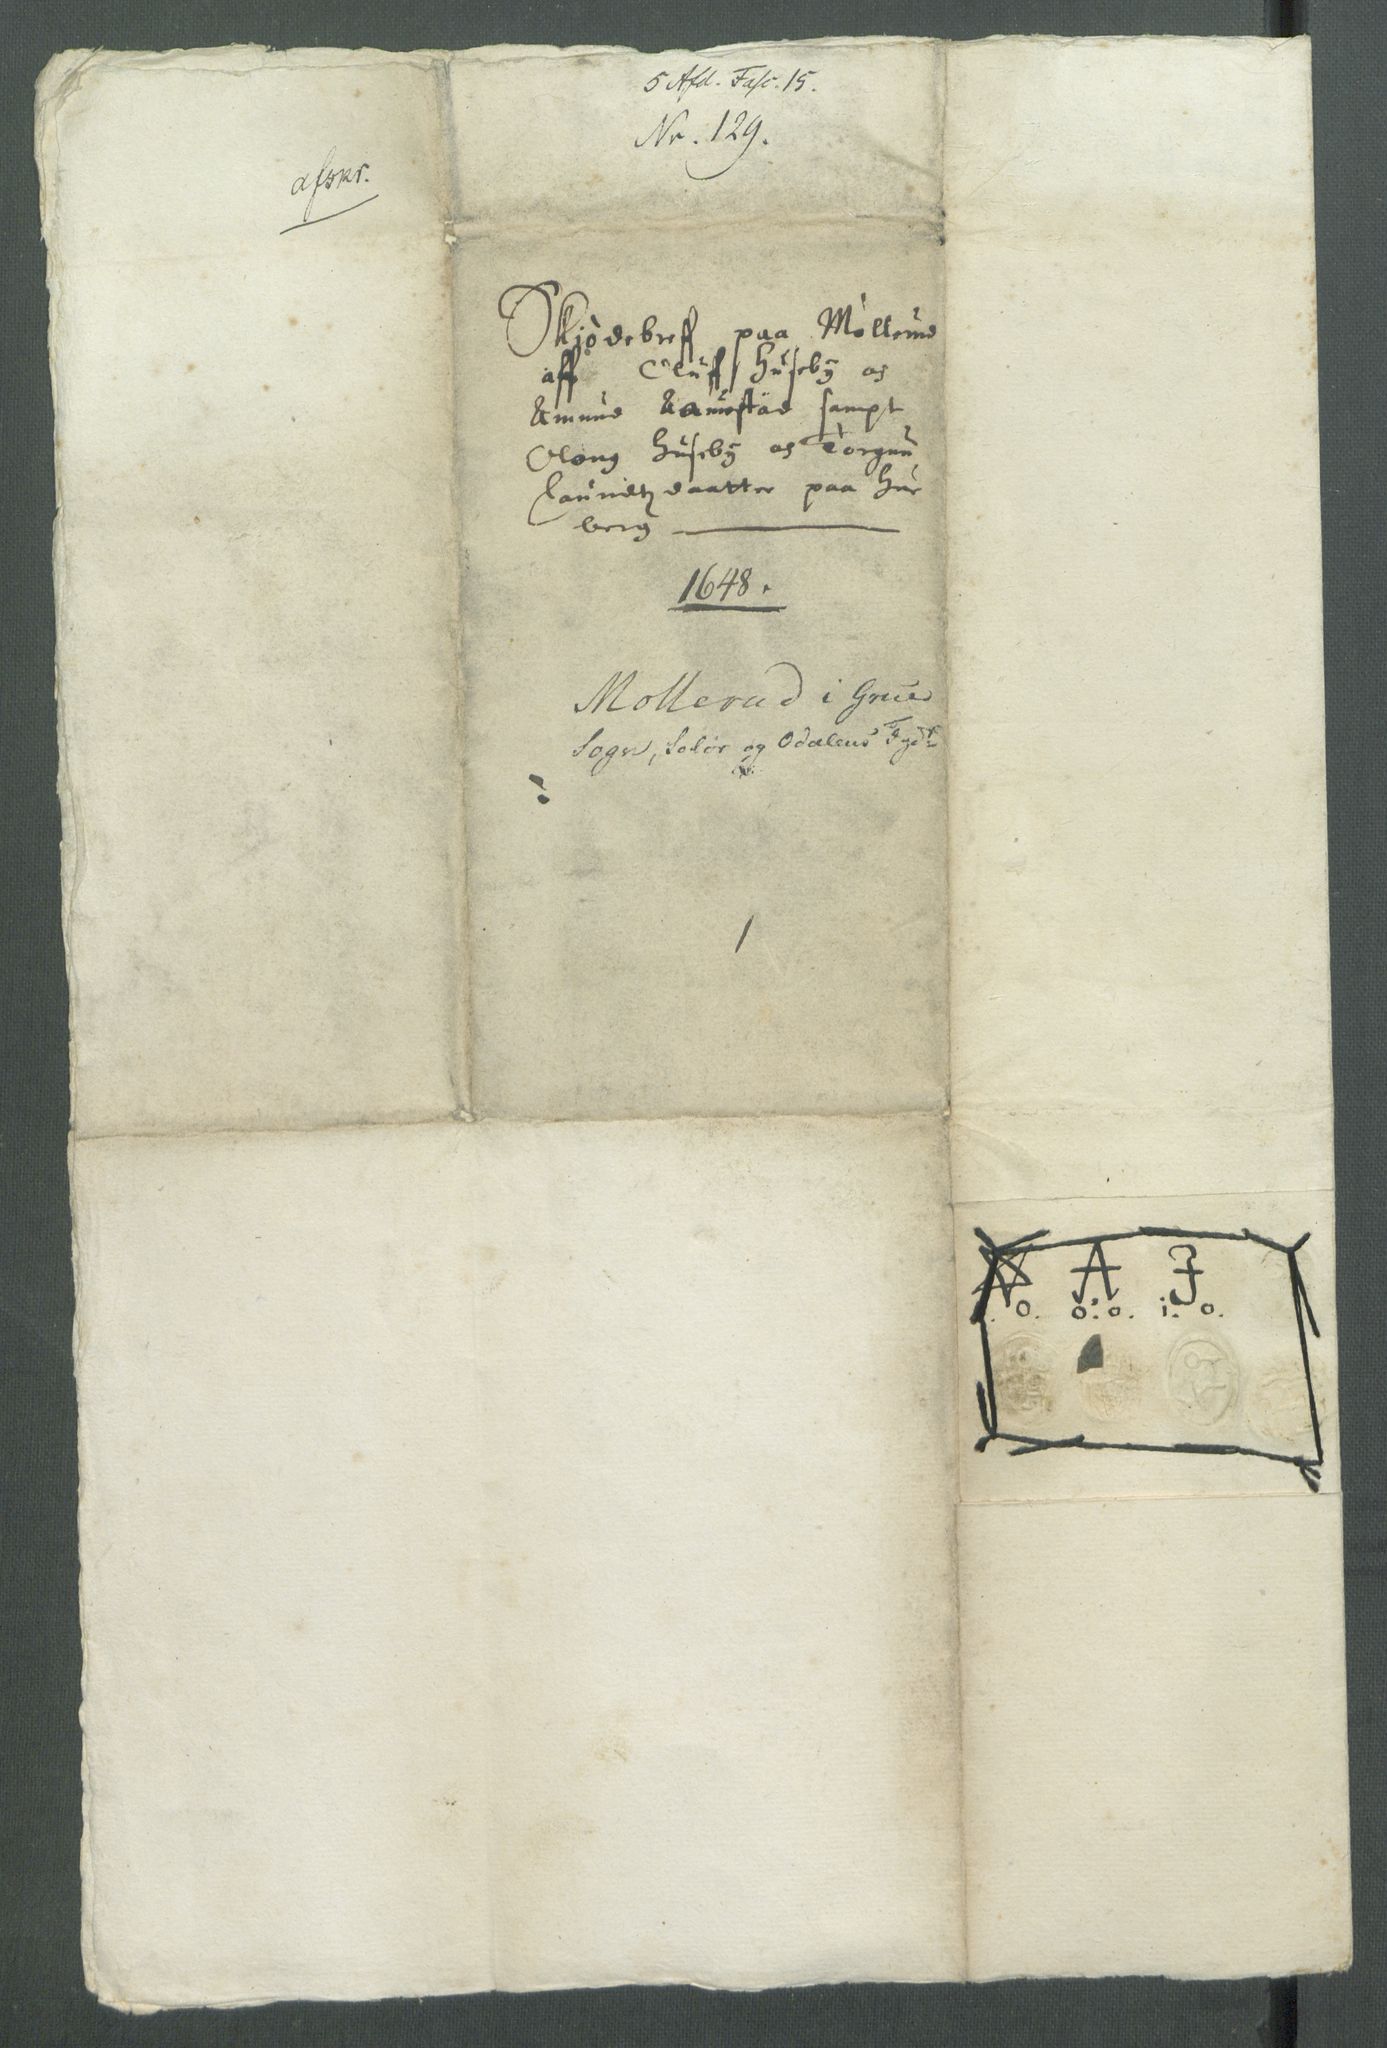 5 Afd. Fasc. 15.
Nr. 129.
afskr.
Skiødebreff paa Møllerud
aff Oluff Huseby og
Amund sampt
Huseby og Torgun
daatter paa Hue
berg
1648.
Mollerud i Grue
Sogn, Solør og Odalens Fogd
1
A J
. o. o: o. i: o.